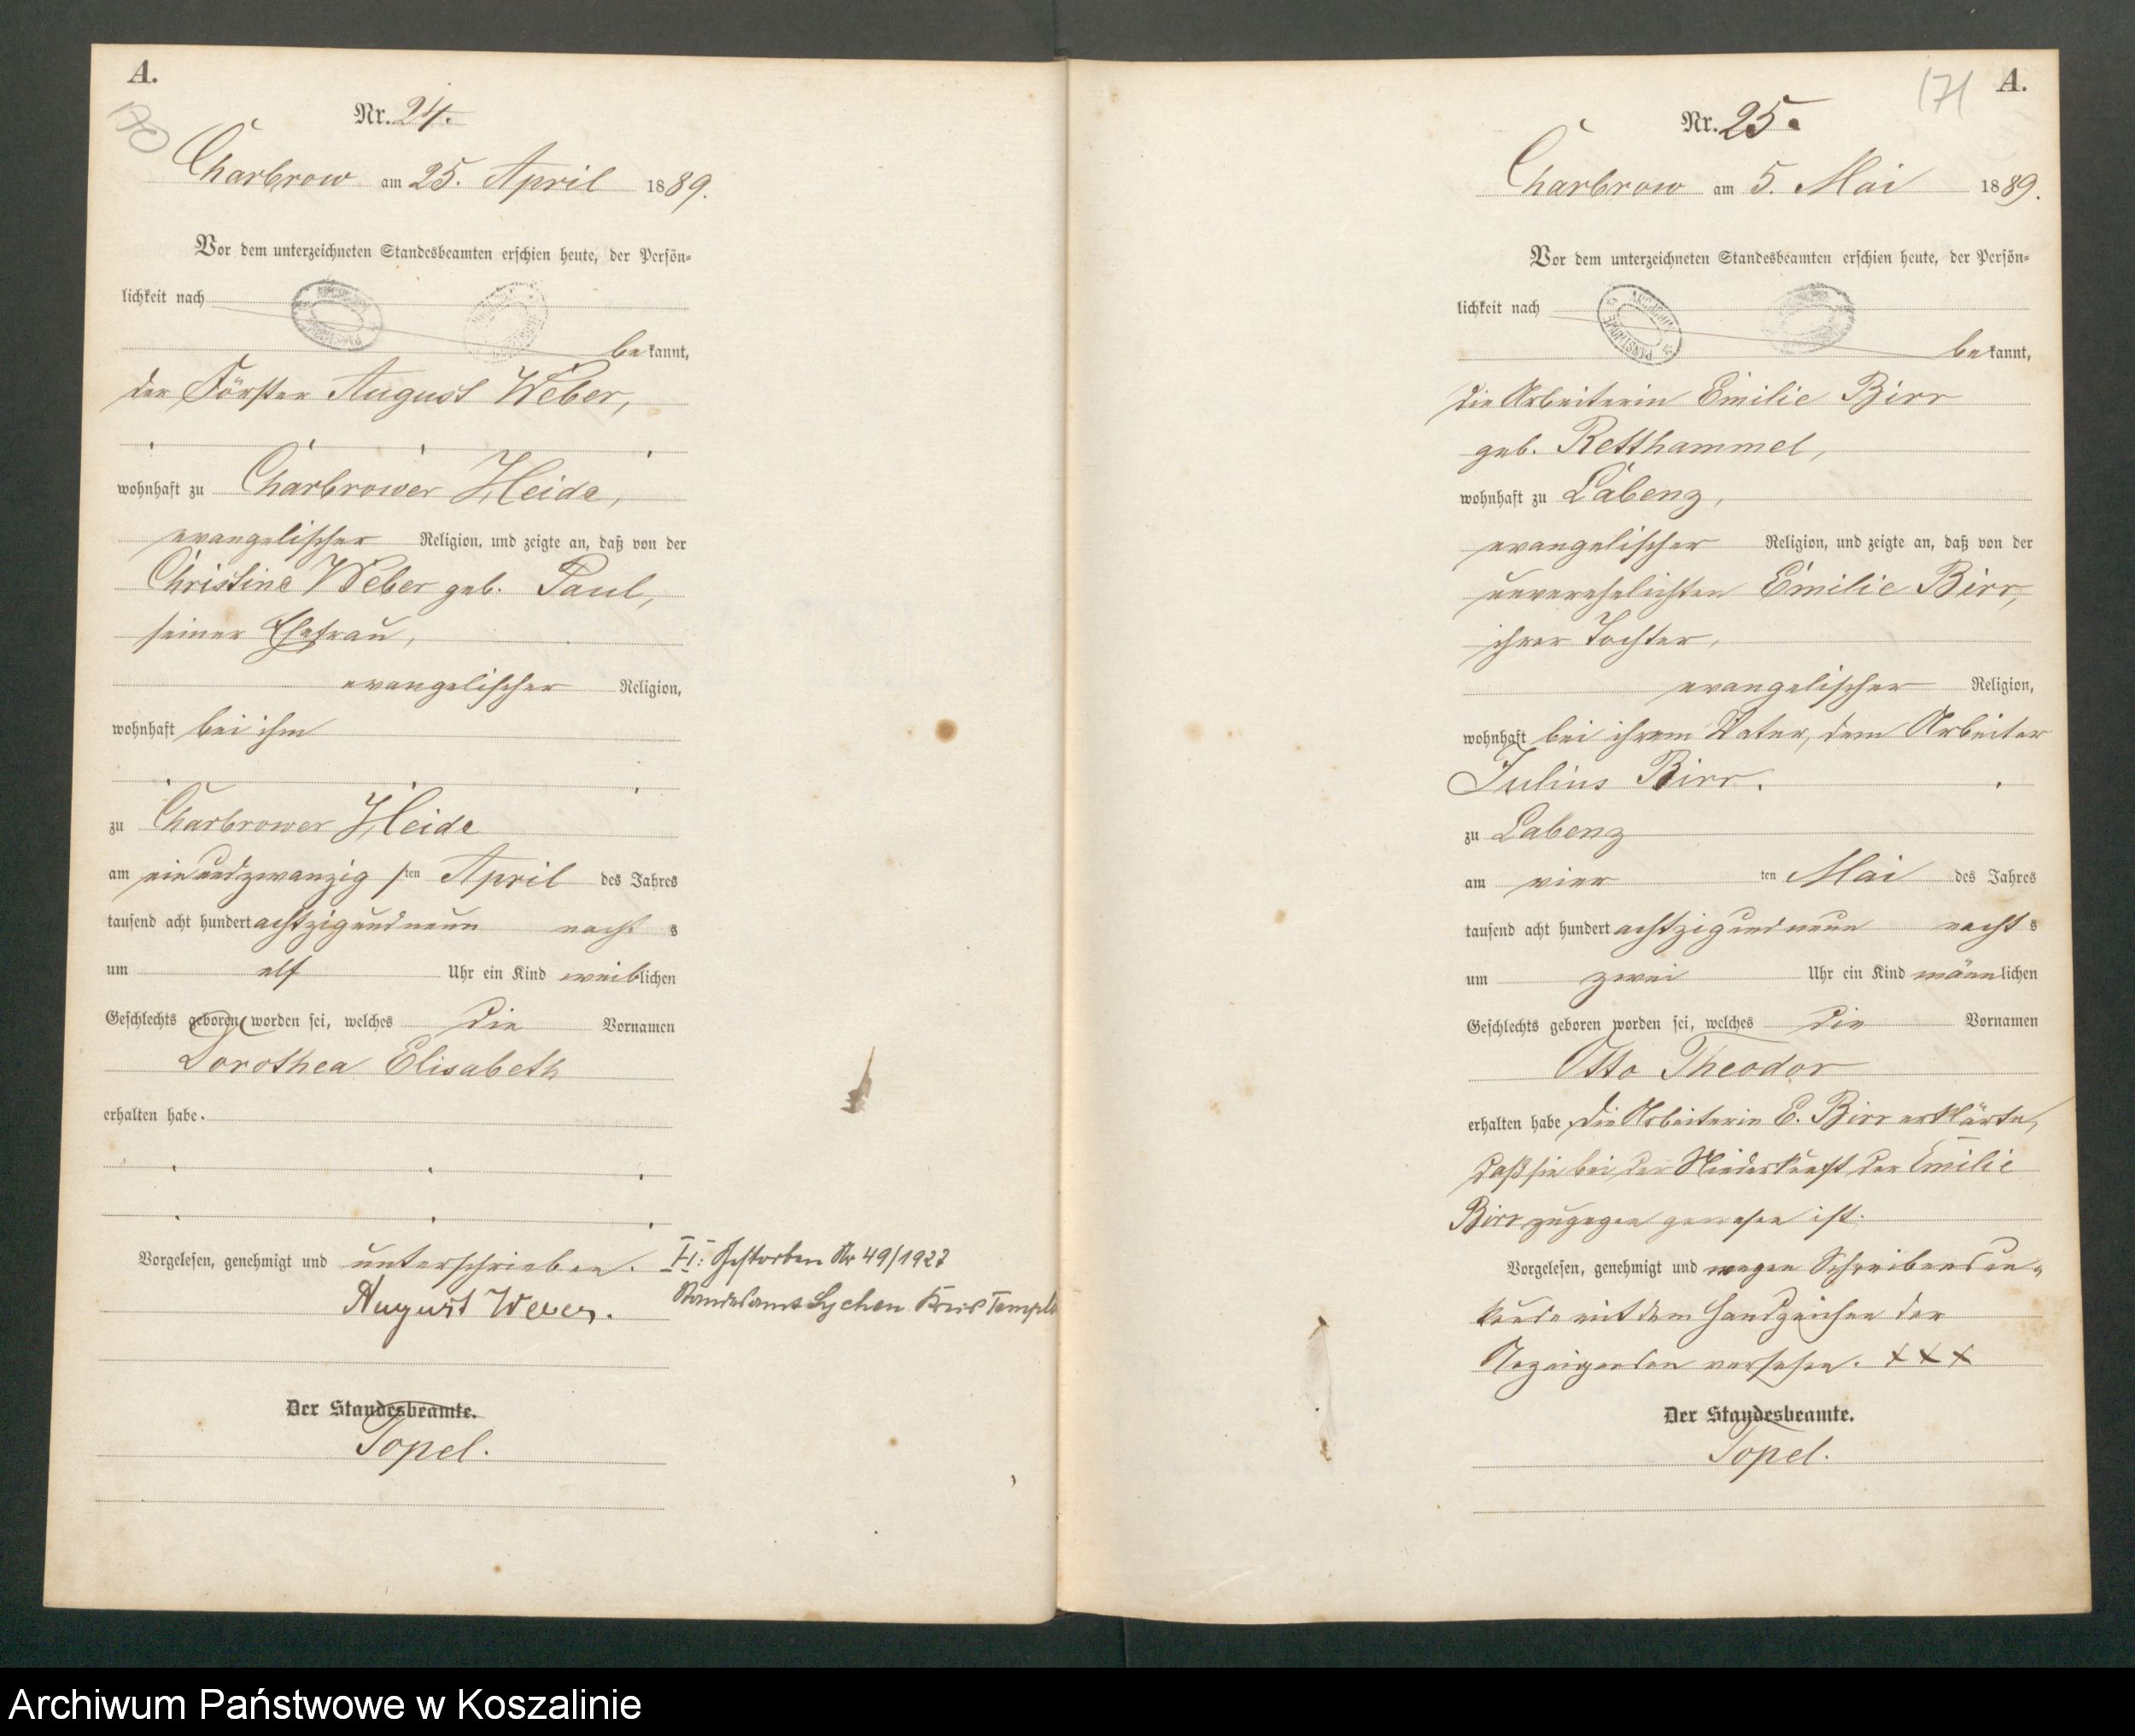 A.
170
Nr. 24.
Charbrow am 25. April 1889.
Vor dem unterzeichneten Standesbeamten erschien heute, der Persön-
lichkeit nach
bekannt,
der Förster August Weber,
wohnhaft zu Charbrower Heide,
evangelischer Religion, und zeigte an, daß von der
Christine Weber geb. Paul,
seiner Ehefrau,
evangelischer Religion,
wohnhaft bei ihm
zu Charbrower Heide
am einundzwanzigsten April des Jahres
tausend acht hundert achtzigundneun nachts
um elf Uhr ein Kind weiblichen
Geschlechts geboren worden sei, welches die Vornamen
Dorothea Elisabeth
erhalten habe.
Vorgelesen, genehmigt und unterschrieben.
August Weber.
H: Gestorben Nr 49/1927
Standesamt Lychen Kreis Templ
Der Standesbeamte.
Topel.
171
A.
Nr. 25.
Charbrow am 5. Mai 1889.
Vor dem unterzeichneten Standesbeamten erschien heute, der Persön-
lichkeit nach
bekannt,
die Arbeiterin Emilie Birr
geb. Retthammel,
wohnhaft zu Labenz,
evangelischer Religion, und zeigte an, daß von der
unverehelichten Emilie Birr,
ihrer Tochter,
evangelischer Religion,
wohnhaft bei ihrem Vater, dem Arbeiter
Julius Birr.
zu Labenz
am vierten Mai des Jahres
tausend acht hundert achtzigundneun nachts
um zwei Uhr ein Kind männlichen
Geschlechts geboren worden sei, welches die Vornamen
Otto Theodor
erhalten habe. Die Arbeiterin E. Birr erklärte,
daß sie bei der Niederkunft der Emilie
Birr zugegen gewesen ist.
Vorgelesen, genehmigt und wegen Schreibensun-
kunde mit dem Handzeichen der
Anzeigenden versehen. XXX
Der Standesbeamte.
Topel.
Archiwum Państwowe w Koszalinie